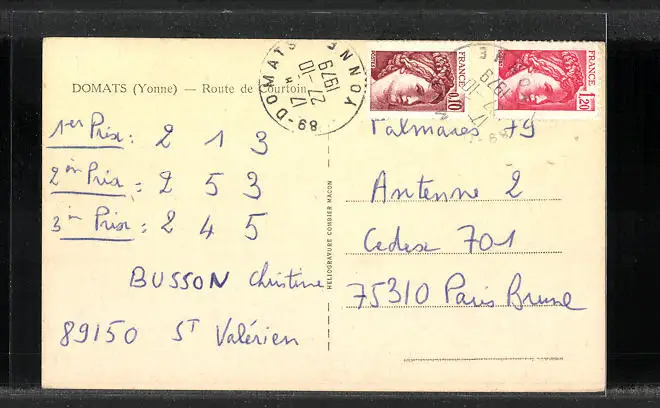 DOMATS (Yonne) — Route de Courtoin
89-DOMATS YONNE
17 H
27-10
1979
FRANCE
0,10
FRANCE
1,20
1er Prix : 2 1 3
2èm Prix : 2 5 3
3èm Prix : 2 4 5
BUSSON Christine
89150 ST Valérien
HELIOGRAVURE COMBIER MACON
Palmares 79
Antenne 2
Cedex 701
75310 Paris Brune